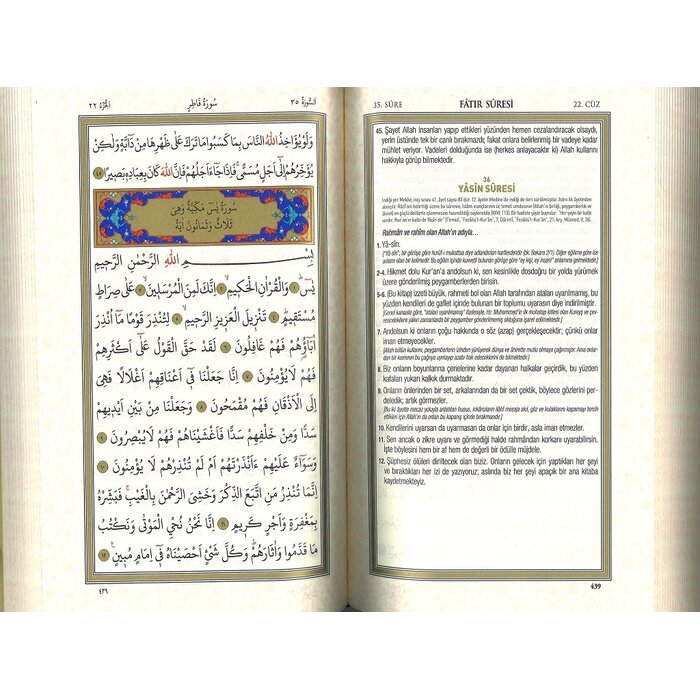 الجزء ٢٢
سورة فاطر
السورة ٣٥
وَلَوْ يُؤَاخِذُ اللّٰهُ النَّاسَ بِمَا كَسَبُوا مَا تَرَكَ عَلٰى ظَهْرِهَا مِنْ دَٓابَّةٍ وَلٰكِنْ
يُؤَخِّرُهُمْ اِلٰٓى اَجَلٍ مُسَمًّىۚ فَاِذَا جَٓاءَ اَجَلُهُمْ فَاِنَّ اللّٰهَ كَانَ بِعِبَادِه۪ بَص۪يرًا ٤٥
سُورَةُ يٰسٓ مَكِّيَّةٌ وَهِيَ
ثَلَاثٌ وَثَمَانُونَ اٰيَةً
بِسْمِ اللّٰهِ الرَّحْمٰنِ الرَّح۪يمِ
يٰسٓ ١ وَالْقُرْاٰنِ الْحَك۪يمِ ٢ اِنَّكَ لَمِنَ الْمُرْسَل۪ينَ ٣ عَلٰى صِرَاطٍ
مُسْتَق۪يمٍ ٤ تَنْز۪يلَ الْعَز۪يزِ الرَّح۪يمِ ٥ لِتُنْذِرَ قَوْمًا مَٓا اُنْذِرَ
اٰبَٓاؤُ۬هُمْ فَهُمْ غَافِلُونَ ٦ لَقَدْ حَقَّ الْقَوْلُ عَلٰٓى اَكْثَرِهِمْ
فَهُمْ لَا يُؤْمِنُونَ ٧ اِنَّا جَعَلْنَا ف۪ٓي اَعْنَاقِهِمْ اَغْلَالًا فَهِيَ
اِلَى الْاَذْقَانِ فَهُمْ مُقْمَحُونَ ٨ وَجَعَلْنَا مِنْ بَيْنِ اَيْد۪يهِمْ
سَدًّا وَمِنْ خَلْفِهِمْ سَدًّا فَاَغْشَيْنَاهُمْ فَهُمْ لَا يُبْصِرُونَ ٩
وَسَوَٓاءٌ عَلَيْهِمْ ءَاَنْذَرْتَهُمْ اَمْ لَمْ تُنْذِرْهُمْ لَا يُؤْمِنُونَ ١٠
اِنَّمَا تُنْذِرُ مَنِ اتَّبَعَ الذِّكْرَ وَخَشِيَ الرَّحْمٰنَ بِالْغَيْبِۚ فَبَشِّرْهُ
بِمَغْفِرَةٍ وَاَجْرٍ كَر۪يمٍ ١١ اِنَّا نَحْنُ نُحْيِ الْمَوْتٰى وَنَكْتُبُ
مَا قَدَّمُوا وَاٰثَارَهُمْۜ وَكُلَّ شَيْءٍ اَحْصَيْنَاهُ ف۪ٓي اِمَامٍ مُب۪ينٍ۟ ١٢
٤٣٩
35. SÛRE
FÂTIR SÛRESİ
22. CÜZ
45. Şayet Allah insanları yapıp ettikleri yüzünden hemen cezalandıracak olsaydı,
yerin üstünde tek bir canlı bırakmazdı; fakat onlara belirlenmiş bir vadeye kadar
mühlet veriyor. Vadeleri dolduğunda ise (herkes anlayacaktır ki) Allah kullarını
hakkıyla görüp bilmektedir.
36
YÂSÎN SÛRESİ
Rahmân ve rahîm olan Allah'ın adıyla...
1. Yâ-sîn.
2-4. Hikmet dolu Kur'an'a andolsun ki, sen kesinlikle dosdoğru bir yolda yürümek
üzere gönderilmiş peygamberlerden birisin.
5-6. (Bu kitap) izzeti büyük, rahmeti bol olan Allah tarafından ataları uyarılmamış, bu
yüzden kendileri de gaflet içinde bulunan bir toplumu uyarasın diye indirilmiştir.
7. Andolsun ki onların çoğu hakkında o söz (azap) gerçekleşecektir; çünkü onlar
iman etmeyecekler.
8. Biz onların boyunlarına çenelerine kadar dayanan halkalar geçirdik, bu yüzden
kafaları yukarı kalkık durmaktadır.
9. Onların önlerinden bir set, arkalarından da bir set çektik, böylece gözlerini per-
deledik; artık görmezler.
10. Kendilerini uyarsan da uyarmasan da onlar için birdir, asla iman etmezler.
11. Sen ancak o zikre uyanı ve görmediği halde rahmândan korkanı uyarabilirsin.
İşte böylesini hem bir af hem de değerli bir ödülle müjdele.
12. Şüphesiz ölüleri diriltecek olan biziz. Onların gelecek için yaptıkları her şeyi
ve bıraktıkları her izi de yazıyoruz; aslında biz her şeyi apaçık bir ana kitaba
kaydetmekteyiz.
439